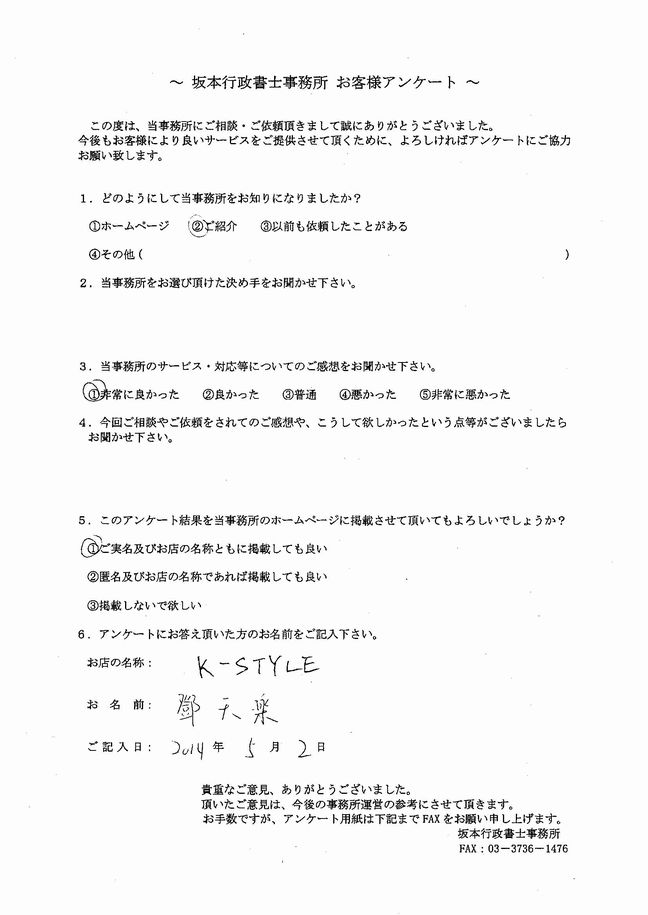 ～ 坂本行政書士事務所 お客様アンケート ～
この度は、当事務所にご相談・ご依頼頂きまして誠にありがとうございました。
今後もお客様により良いサービスをご提供させて頂くために、よろしければアンケートにご協力
お願い致します。
１．どのようにして当事務所をお知りになりましたか？
①ホームページ　②ご紹介　③以前も依頼したことがある
④その他（　　　　　　　　　　）
２．当事務所をお選び頂けた決め手をお聞かせ下さい。
３．当事務所のサービス・対応等についてのご感想をお聞かせ下さい。
①非常に良かった　②良かった　③普通　④悪かった　⑤非常に悪かった
４．今回ご相談やご依頼をされてのご感想や、こうして欲しかったという点等がございましたら
お聞かせ下さい。
５．このアンケート結果を当事務所のホームページに掲載させて頂いてもよろしいでしょうか？
①ご実名及びお店の名称ともに掲載しても良い
②匿名及びお店の名称であれば掲載しても良い
③掲載しないで欲しい
６．アンケートにお答え頂いた方のお名前をご記入下さい。
お店の名称： K-STYLE
お 名 前： 鄧 天楽
ご記入日： 2014 年 5 月 2 日
貴重なご意見、ありがとうございました。
頂いたご意見は、今後の事務所運営の参考にさせて頂きます。
お手数ですが、アンケート用紙は下記まで FAX をお願い申し上げます。
坂本行政書士事務所
FAX：03－3736－1476